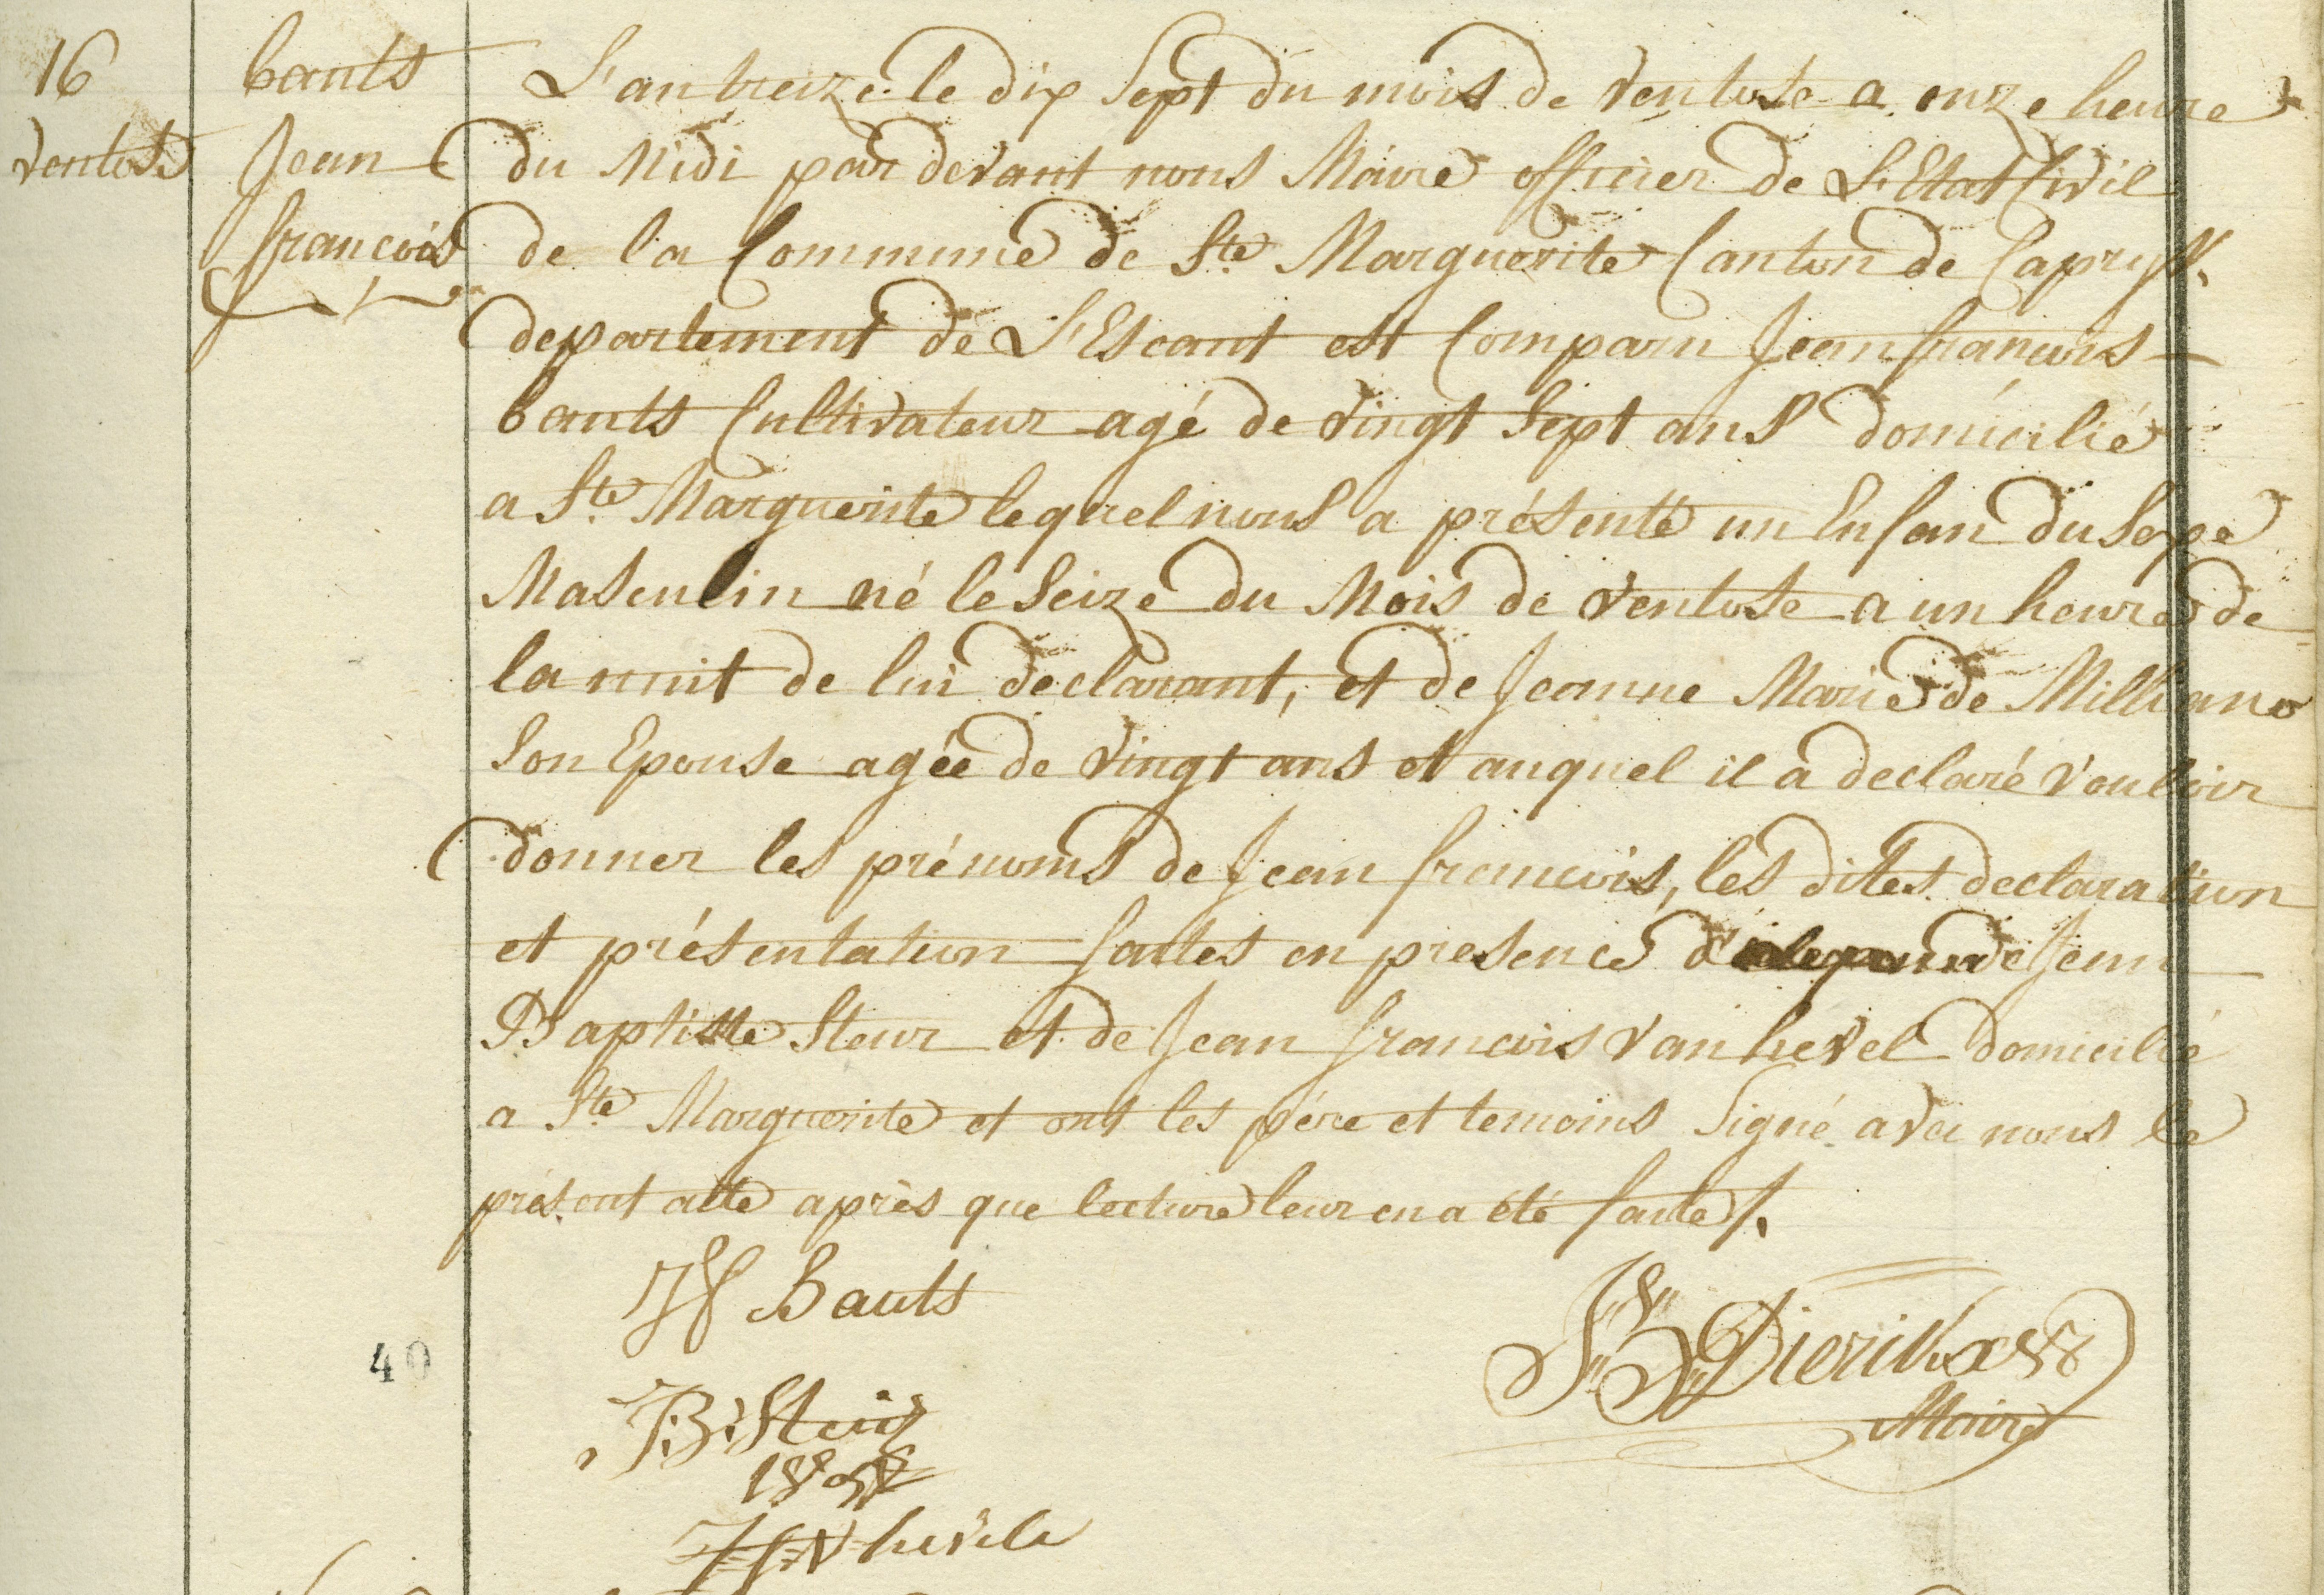 16
ventose
bauts
Jean
francois
L'an treize le dix Sept du mois de ventose a onze heure
du Midi par devant nous Maire officier de L'Etat Civil
de la Commune de Ste Marguerite Canton de Capryk.
departement de L'Escaut est Comparu Jean francois
bauts Cultivateur agé de vingt Sept ans domicilié
a Ste Marguerite lequel nous a présenté un Enfan du Sexe
Masculin né le Seize du Mois de ventose a un heure de
la nuit de lui declarant, et de Jeanne Marie de Milliano
Son Epouse agée de vingt ans et auquel il a declaré vouloir
donner les prénoms de Jean francois, les dites declaration
et présentation faites en presence de Jean
Baptiste Steur et de Jean francois van hevel domicilié
a Ste Marguerite et ont les pére et temoins Signé avec nous le
présent acte après que lecture leur en a été faite /.
JF Bauts
J:B: Steur
1805
J:F:V hevele
J: B: Dierikx
Maire
40